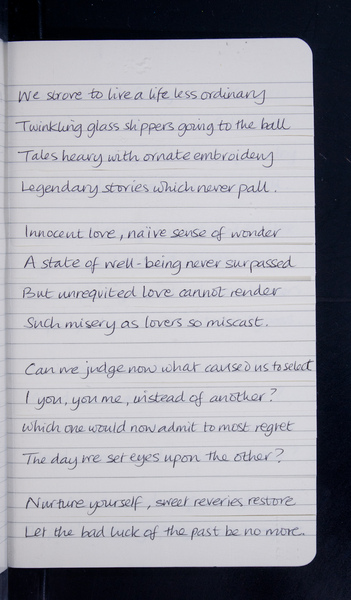 We strove to live a life less ordinary
Twinkling glass slippers going to the ball
Tales heavy with ornate embroidery
Legendary stories which never pall.
Innocent love, naïve sense of wonder
A state of well-being never surpassed
But unrequited love cannot render
Such misery as lovers so miscast.
Can we judge now what caused us to select
I you, you me, instead of another?
Which one would now admit to most regret
The day we set eyes upon the other?
Nurture yourself, sweet reveries restore
Let the bad luck of the past be no more.